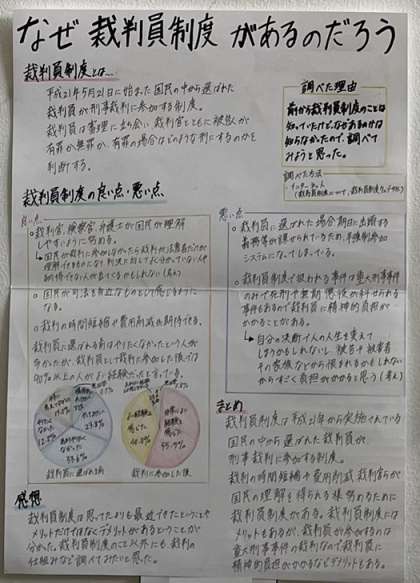 なぜ裁判員制度があるのだろう
裁判員制度とは…
平成21年5月21日に始まった国民の中から選ばれた
裁判員が刑事裁判に参加する制度。
裁判員は審理に出ら会い、裁判官とともに被告が
有罪か無罪か、有罪の場合はどのような刑にするのかを
判断する。
調べた理由
前から裁判員制度のことは
知っていたけど、なぜあるのかは
知らなかったので、調べて
みようと思った。
調べた方法
インターネット
裁判員制度の良い点・悪い点
良い点
○裁判官、検察官、弁護士が国民が理解
しやすいように努める。
○国民が司法を身近なものとして感じるように
なる。
○裁判の時間短縮や費用削減も期待できる。
裁判員に選ばれる前はやりたくなかったという人が
多かったが、裁判員として裁判に参加した後では
90%以上の人がよい経験だったと言っている。
裁判員に選ばれる前
裁判に参加した後
悪い点
○裁判員に選ばれた場合期日に出席する
義務等が課せられているため、半強制参加
システムになってしまっている。
○裁判員制度で扱われる事件は重大刑事事件
のみで死刑や無期懲役が科せられる
事件もあるので裁判員に精神的負担が
かかることがある。
↳自分の決断で人の人生を変えて
しまうかもしれないし、被告や被害者
その家族などから恨まれるかもしれない
からすごく負担がかかると思う(考え)
まとめ
裁判員制度は平成21年から実施されている
国民の中から選ばれた裁判員が
刑事裁判に参加する制度。
裁判の時間短縮や費用削減、裁判官らが
国民の理解を得られる様努めるために
裁判員制度がある。裁判員制度には
メリットもあるが、裁判員が参加するのは
重大刑事事件の裁判なので裁判員に
精神的負担がかかるなどデメリットもある。
感想
裁判員制度は思ってたよりも最近できたということや
メリットだけではなくデメリットがあるということが
分かった。裁判員制度のこと以外にも、裁判の
仕組みなど調べてみたいと思った。